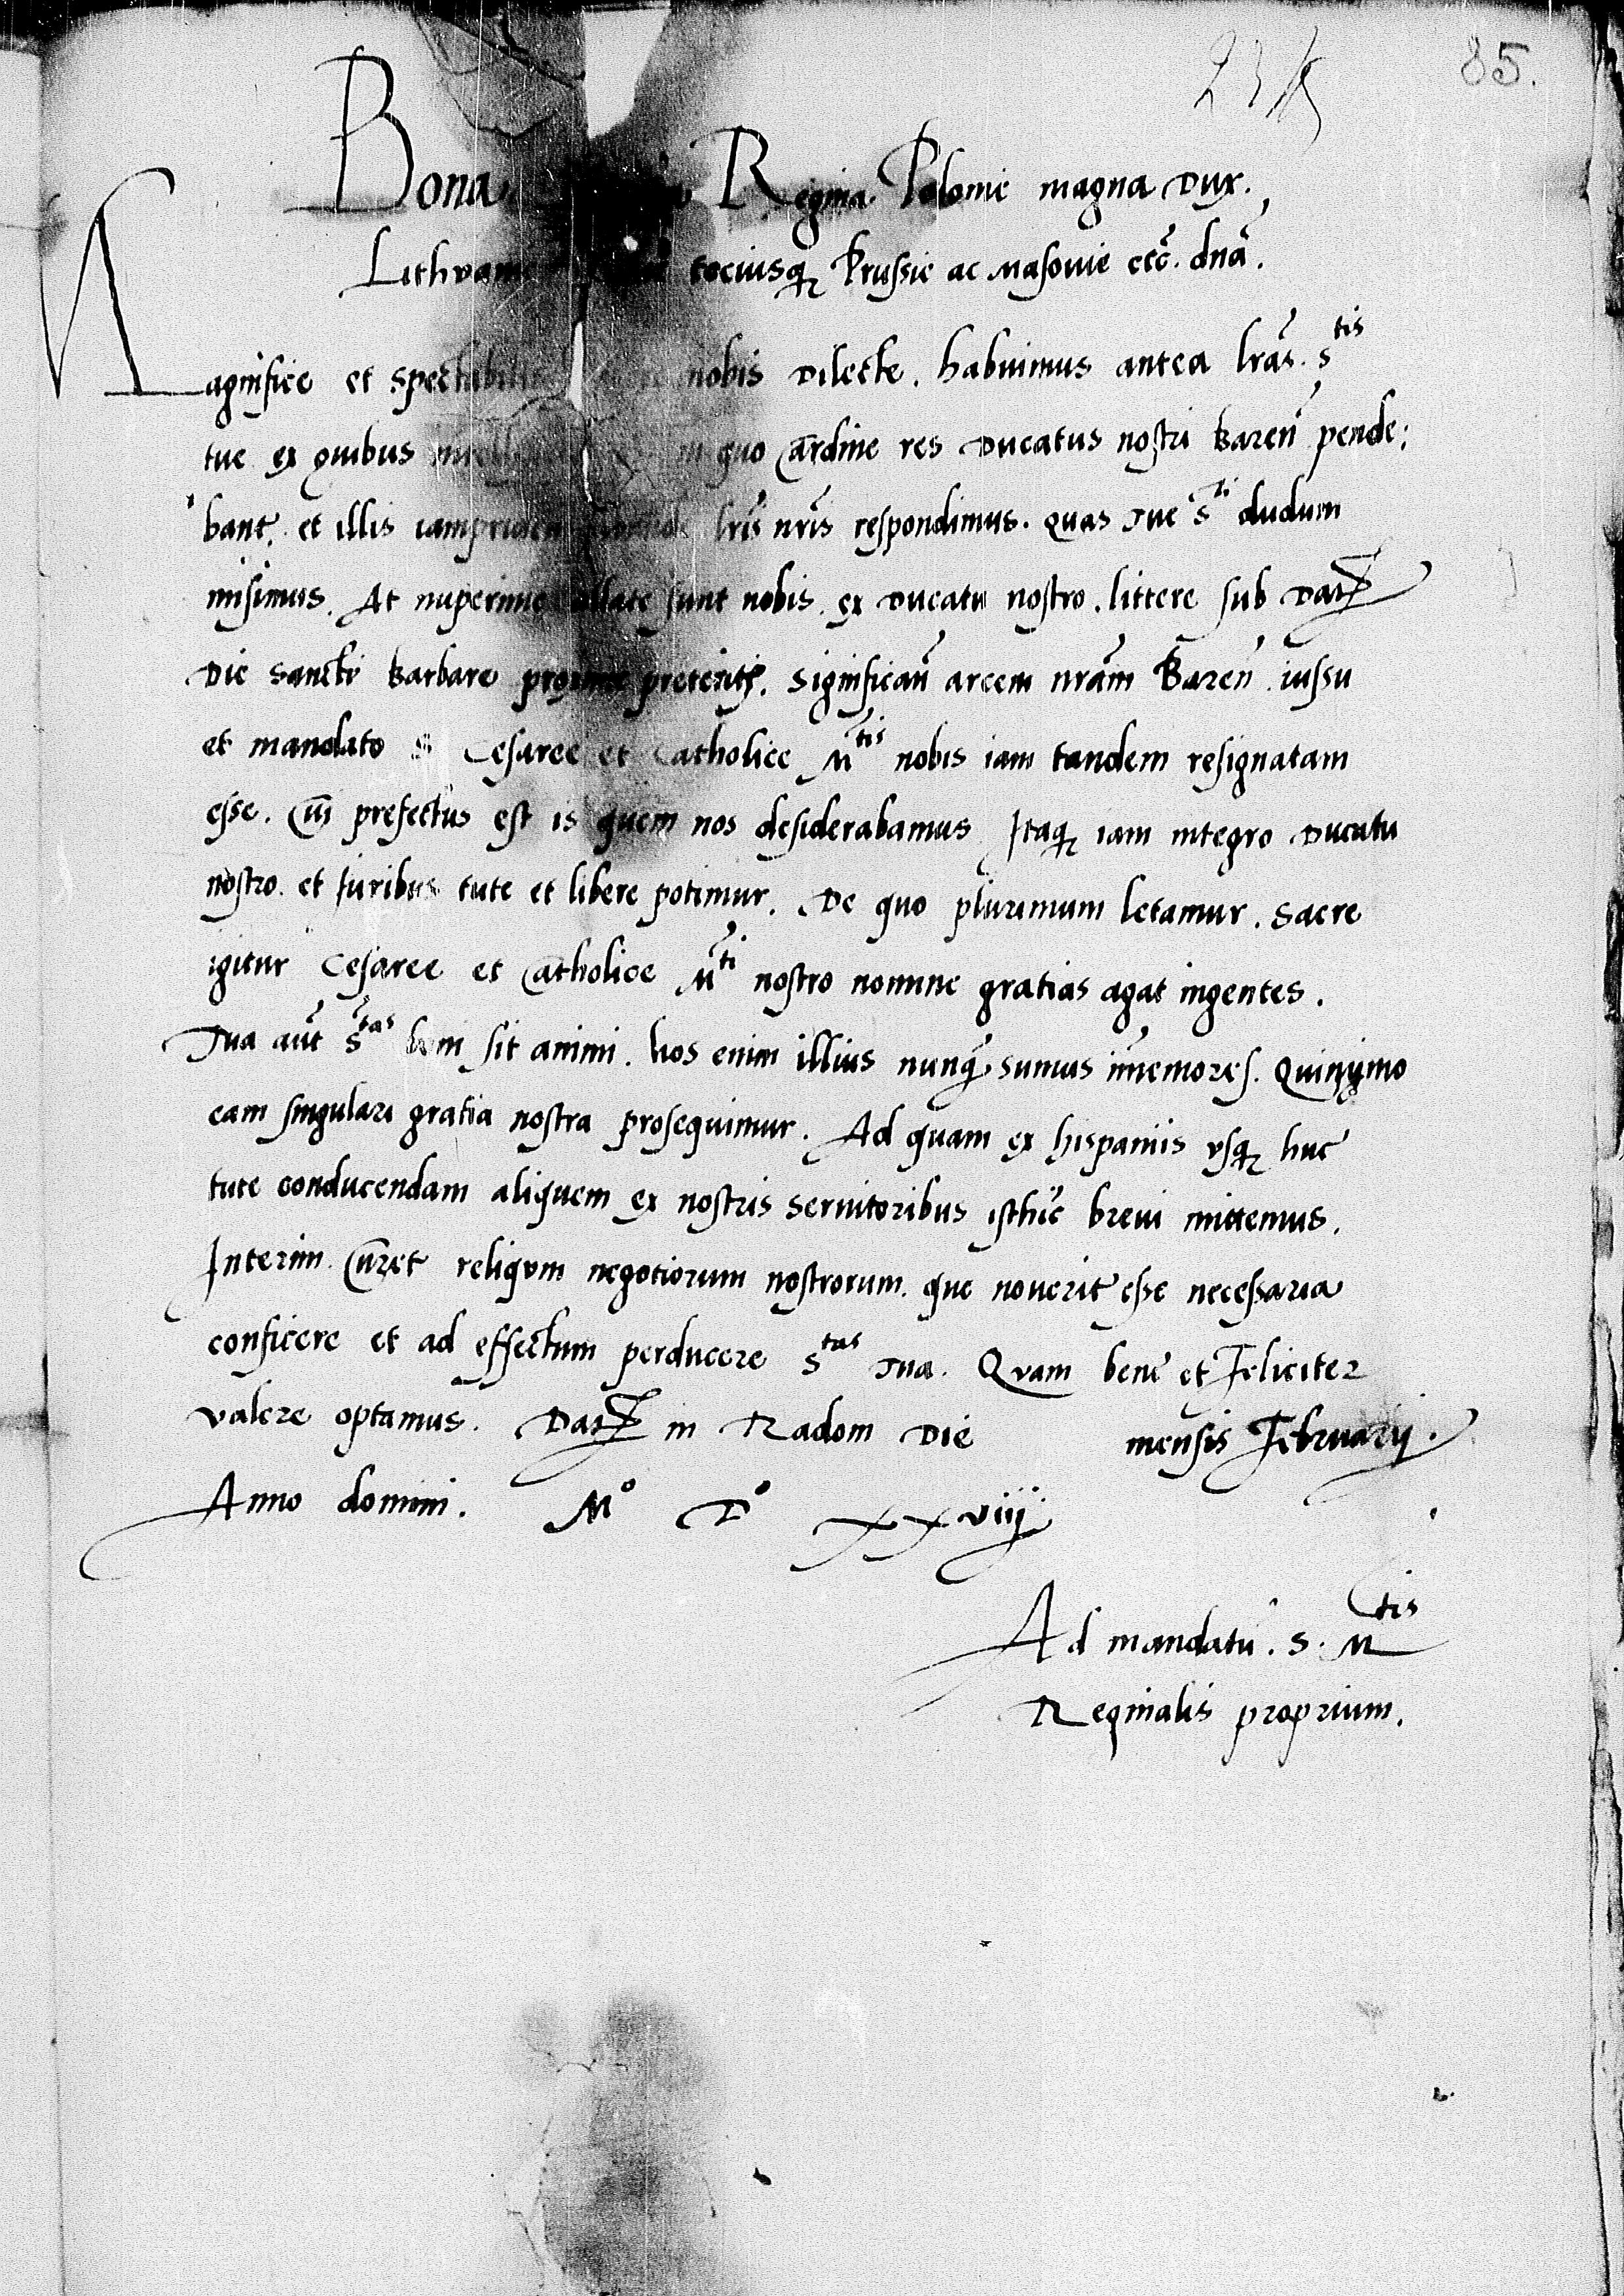 85.
Bona Regina Polonie magna Dux.
Lithvanie tociusq; Prussie ac Masovie etc̃. dnã.
Magnifice et spectabilis nobis Dilecte. habuimus antea lrãs. S^tis
tue ex quibus in quo cardine res Ducatus nostri Bareñ pende:
bant, et illis iampridem lrĩs nrĩs respondimus. quas Tue S^ti dudum
misimus. At nuperime allate sunt nobis ex Ducatu nostro. littere sub Dat
Die Sancte Barbare proxime preterite. significañ arcem nrãm Bareñ iussu
et mandato S Cesaree et Catholice M^tis nobis iam tandem resignatam
esse. Cui prefectus est is quem nos desiderabamus Itaq; iam integro Ducatu
nostro et Iuribus tute et libere potimur. De quo plurimum letamur. Sacre
igitur Cesaree et Catholice M^ti nostro nomine gratias agat ingentes.
Tua aut̃ S^tas boni sit animi. Nos enim illius nunq̃ sumus im̃emores. Quinymo
eam singulari gratia nostra prosequimur. Ad quam ex hispaniis usq; huc
tute conducendam aliquem ex nostris servitoribus isthuc brevi mittemus.
Interim Curet reliqum negotiorum nostrorum. que noverit esse necessaria
conficere et ad effectum perducere S^tas Tua. Quam bene et Feliciter
valere optamus. Dat in Radom Die mensis Februarij.
Anno domini. M° D° xxviiij
Ad mandatũ. S. M^tis
Reginalis proprium.